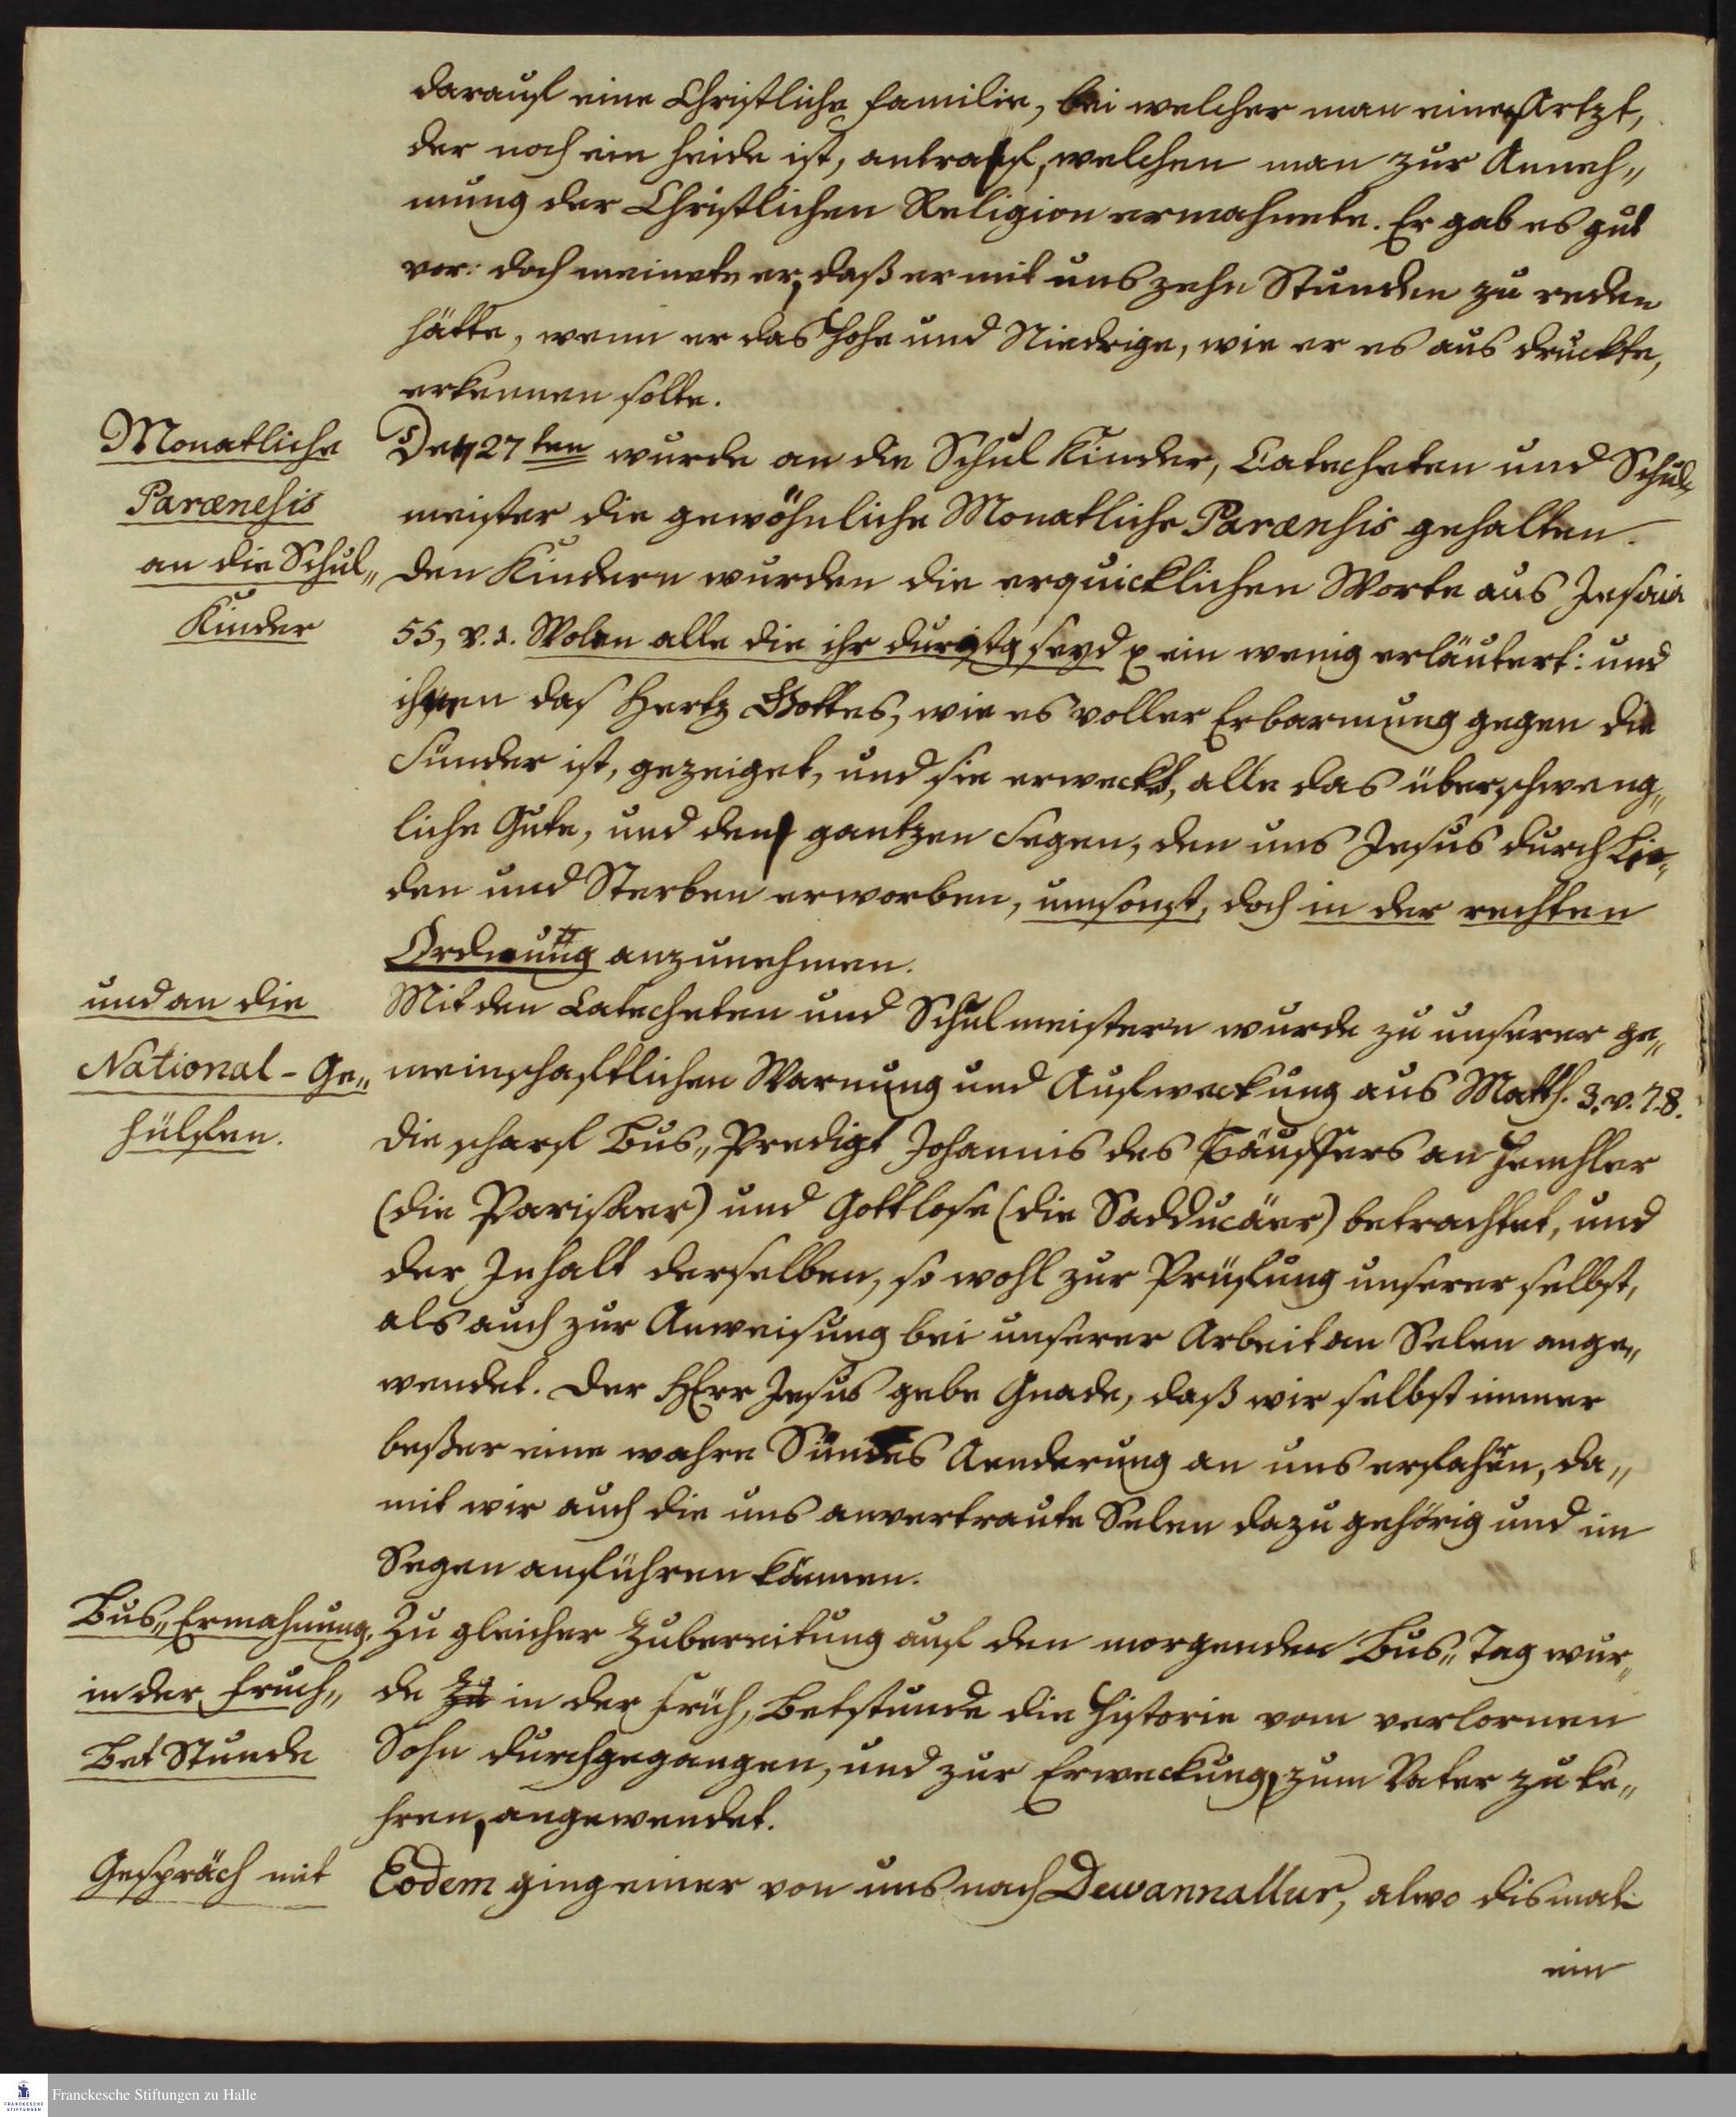 darauf eine Christliche familie, bei welcher man einen Artzt,
der noch ein Heide ist, antraff, welchen man zur Anneh„
mung der Christlichen Religion ermahnete. Er gab es gut
vor: doch meinete er, daß er mit uns zehn Stunden zu reden
hätte, wenn er das Hohe und Niedrige, wie er es aus druckte,
erkennen solte.
Monatliche
Parænesis
an die Schul„
Kinder
Den 27ten wurde an die Schul Kinder, Catecheten und Schul„
meister die gewöhnliche Monatliche Parænesis gehalten.
Den Kindern wurden die erquicklichen Worte aus Jesaia
55, v. 1. Wolan alle die ihr durstig seyd ein wenig erläutert: und
ihnen das Hertz Gottes, wie es voller Erbarmung gegen die
Sünder ist, gezeiget, und sie erweckt, alle das überschweng„
liche Gute, und den gantzen Segen, den uns Jesus durch Lei„
den und Sterben erworben, umsonst, doch in der rechten
Ordnung anzunehmen.
und an die
National-Ge„
hülffen.
Mit den Catecheten und Schulmeistern wurde zu unserer ge„
meinschafftlichen Warnung und Aufweckung aus Matth. 3. v. 7. 8.
die scharf Bus„Predigt Johannis des Täuffers an Heuchler
(die Parisäer) und Gottlose (die Sadducäer) betrachtet, und
der Inhalt derselben, so wohl zur Prüfung unserer selbst,
als auch zur Anweisung bei unserer Arbeit an Selen ange„
wendet. Der HErr Jesus gebe Gnade, daß wir selbst immer
beßer eine wahre Aenderung an uns erfahren, da„
mit wir auch die uns anvertraute Selen dazu gehörig und im
Segen anführen können.
Bus„Ermahnung
in der Fruh„
Bet Stunde
Zu gleicher Zubereitung auf den morgenden Bus„Tag wur„
de zu in der Früh„Betstunde die Historie vom verlornen
Sohn durchgegangen, und zur Erweckung, zum Vater zu ke„
hren, angewendet.
Gespräch mit
Eodem ging einer von uns nach Dewannallur, alwo dismal
ein
Franckesche Stiftungen zu Halle
FRANCKESCHE
STIFTUNGEN